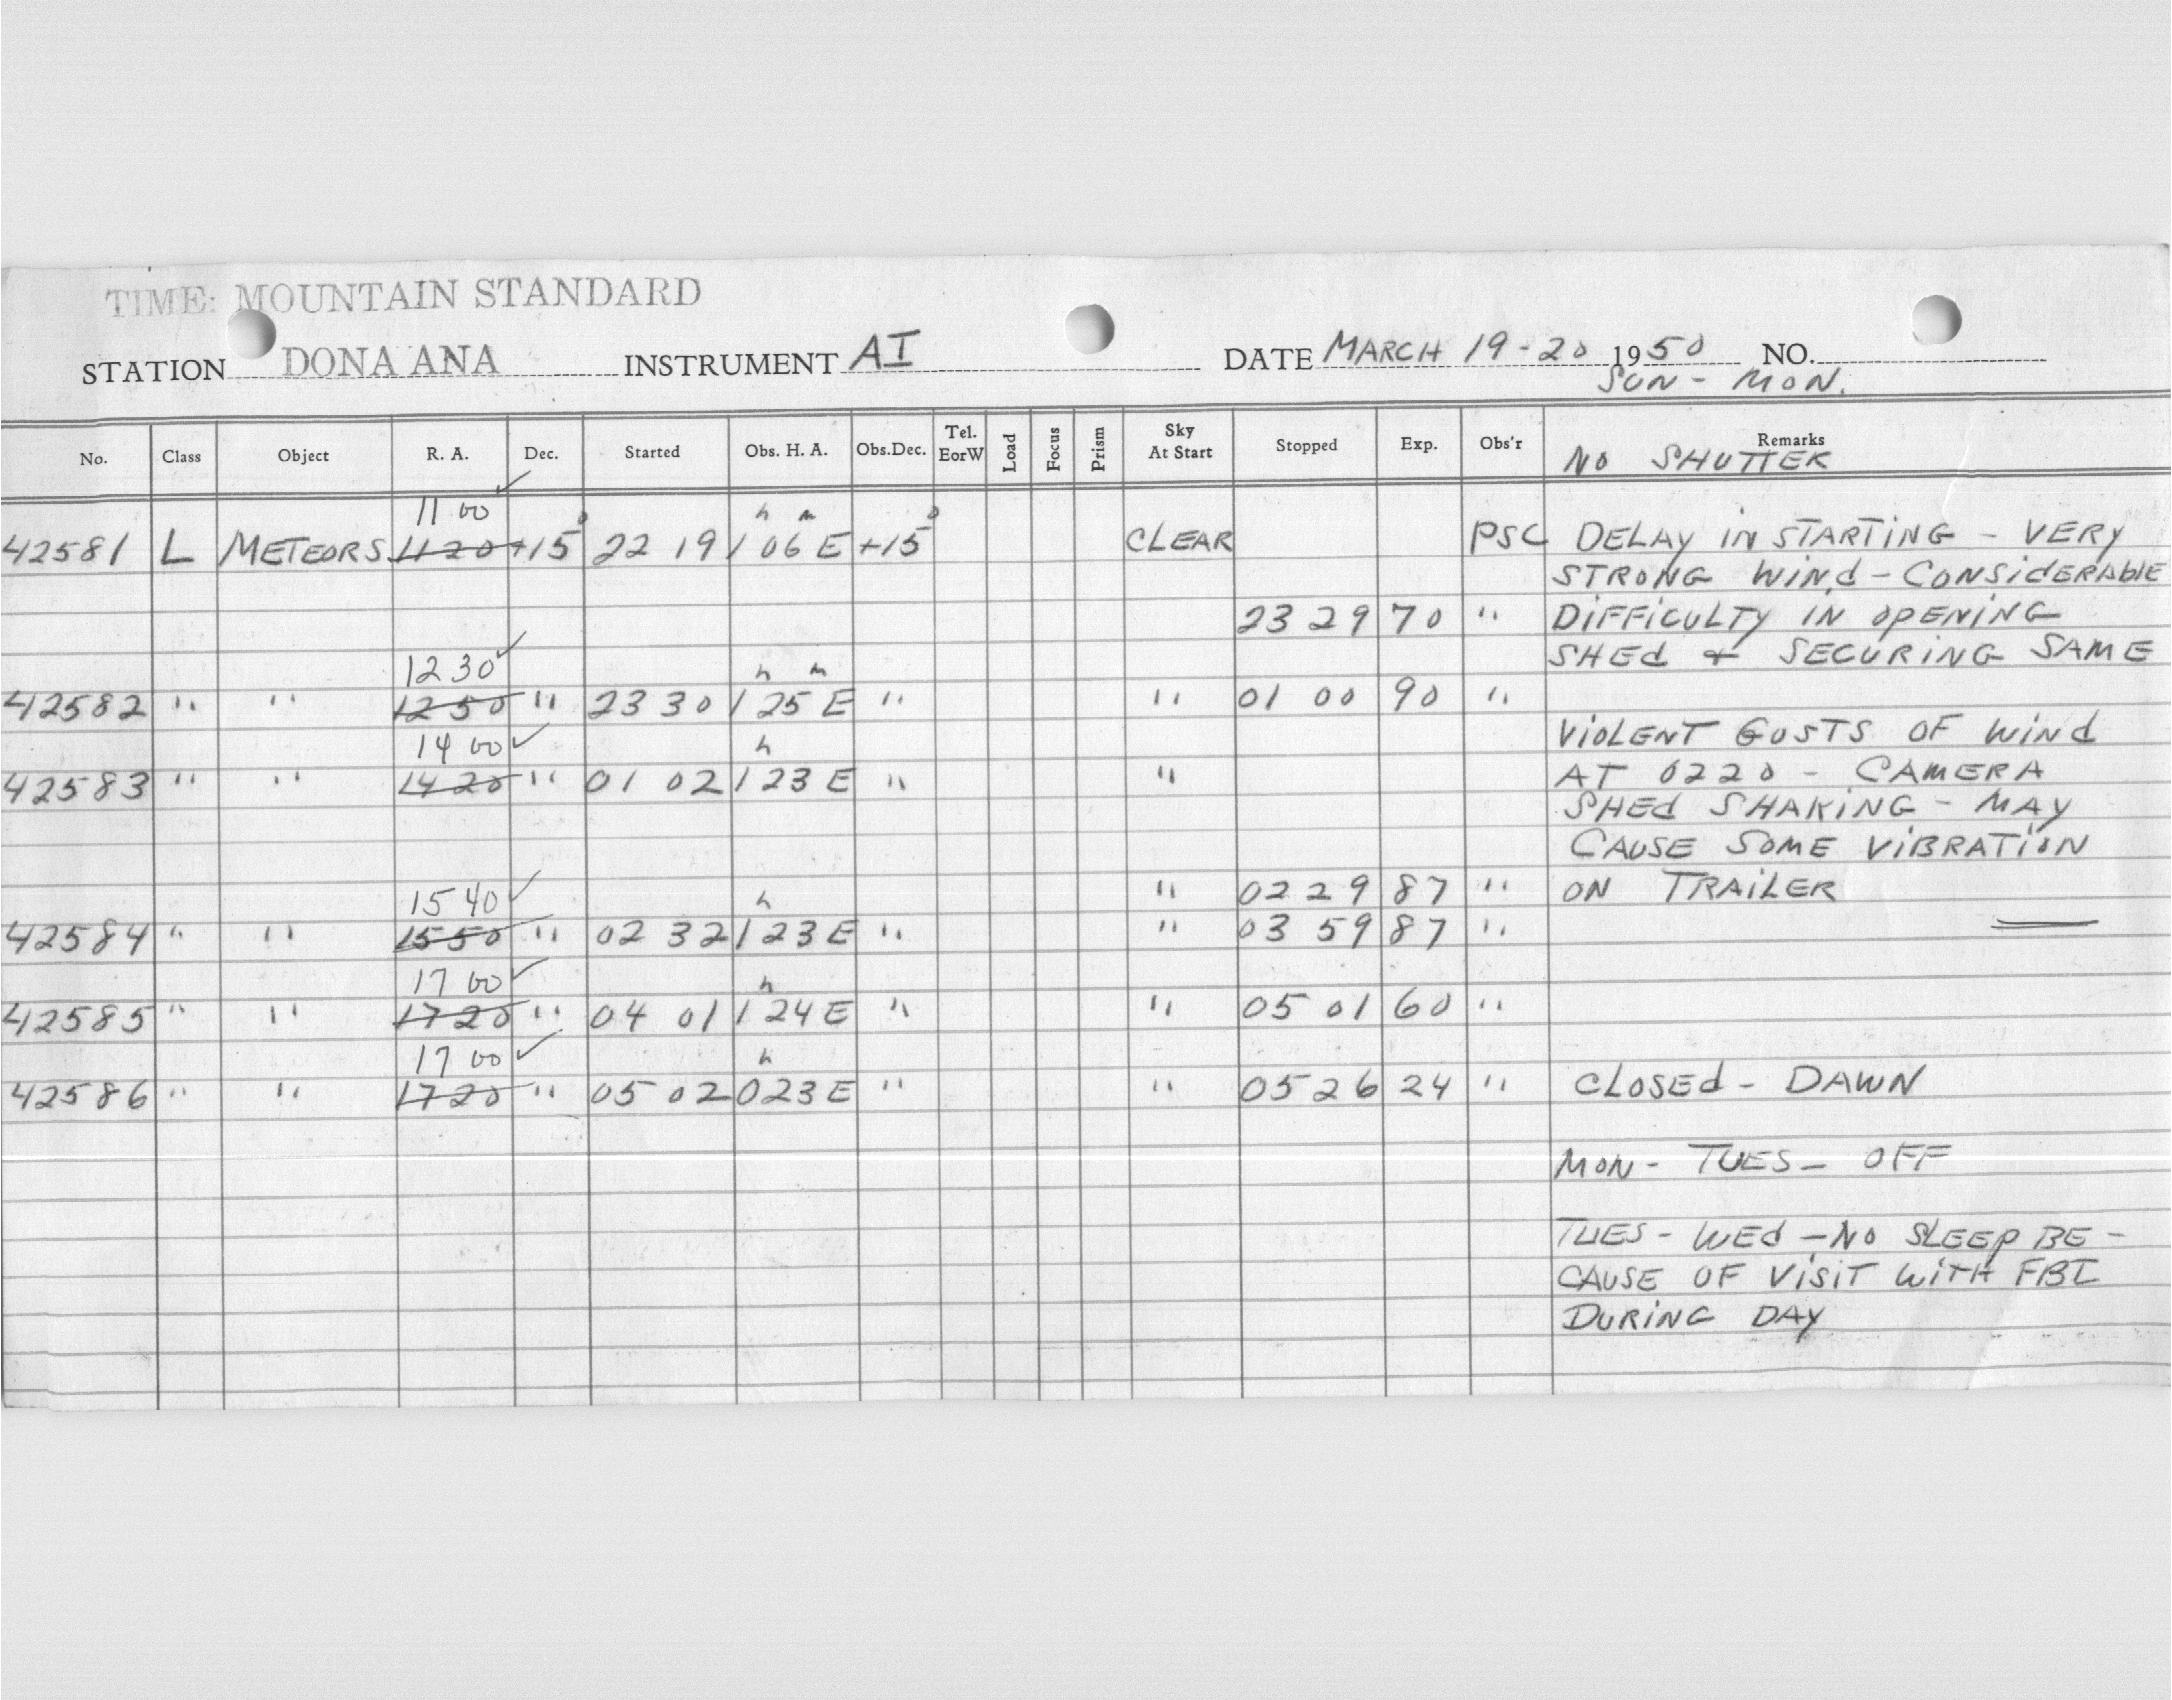 TIME: MOUNTAIN STANDARD
STATION DONA ANA INSTRUMENT AI DATE MARCH 19-20 1950 NO.
SUN - MON.
No. Class Object R. A. Dec. Started Obs. H. A. Obs.Dec. Tel. EorW Load Focus Prism Sky At Start Stopped Exp. Obs'r Remarks
NO SHUTTER
11 00 ✓
42581 L METEORS 11 20 +15° 22 19 1h 06m E +15° CLEAR PSC DELAY IN STARTING - VERY
STRONG WIND - CONSIDERABLE
23 29 70 " DIFFICULTY IN OPENING
12 30 ✓ SHED + SECURING SAME
42582 " " 12 50 " 23 30 1h 25m E " " 01 00 90 "
14 00 ✓ VIOLENT GUSTS OF WIND
42583 " " 14 20 " 01 02 1h 23 E " " AT 0220 - CAMERA
SHED SHAKING - MAY
CAUSE SOME VIBRATION
15 40 ✓ " 02 29 87 " ON TRAILER
42584 " " 15 50 " 02 32 1h 23 E " " 03 59 87 "
17 00 ✓
42585 " " 17 20 " 04 01 1h 24 E " " 05 01 60 "
17 00 ✓
42586 " " 17 20 " 05 02 0h 23 E " " 05 26 24 " CLOSED - DAWN
MON - TUES - OFF
TUES - WED - NO SLEEP BE -
CAUSE OF VISIT WITH FBI
DURING DAY